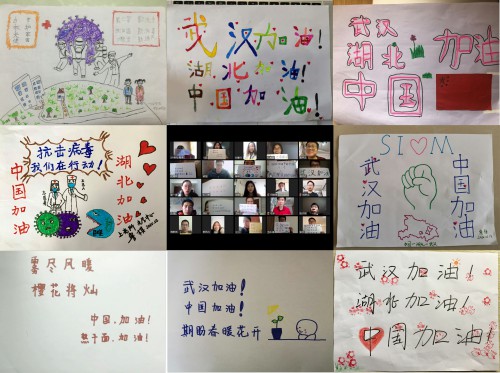 武汉加油！
湖北加油！
中国加油！
武汉
湖北 加油
中国
抗击病毒
我们在行动！
中国加油
湖北加油
SIOM
武汉加油
中国加油
雾尽风暖
樱花将灿
中国，加油！
热干面，加油！
武汉加油！
中国加油！
期盼春暖花开
武汉加油！
湖北加油！
中国加油！